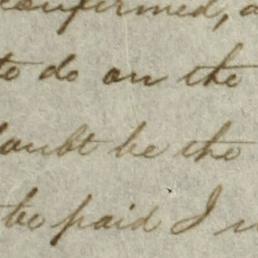 confirmed,
to do on the
doubt be the
be paid I